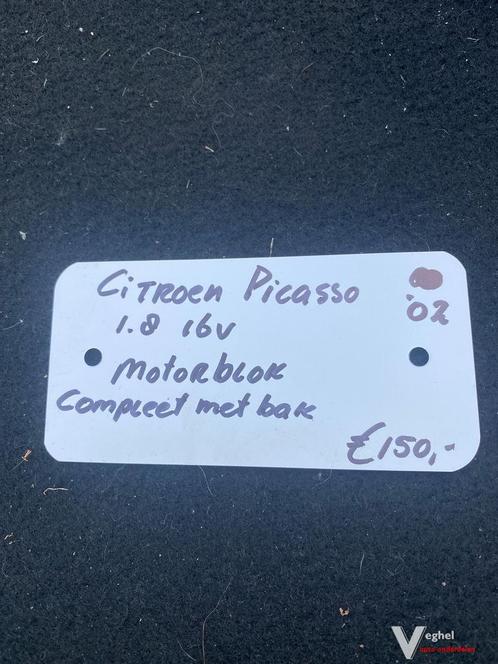 Citroen Picasso
'02
1.8 16v
Motorblok
Compleet met bak
€150,-
Veghel
auto-onderdelen